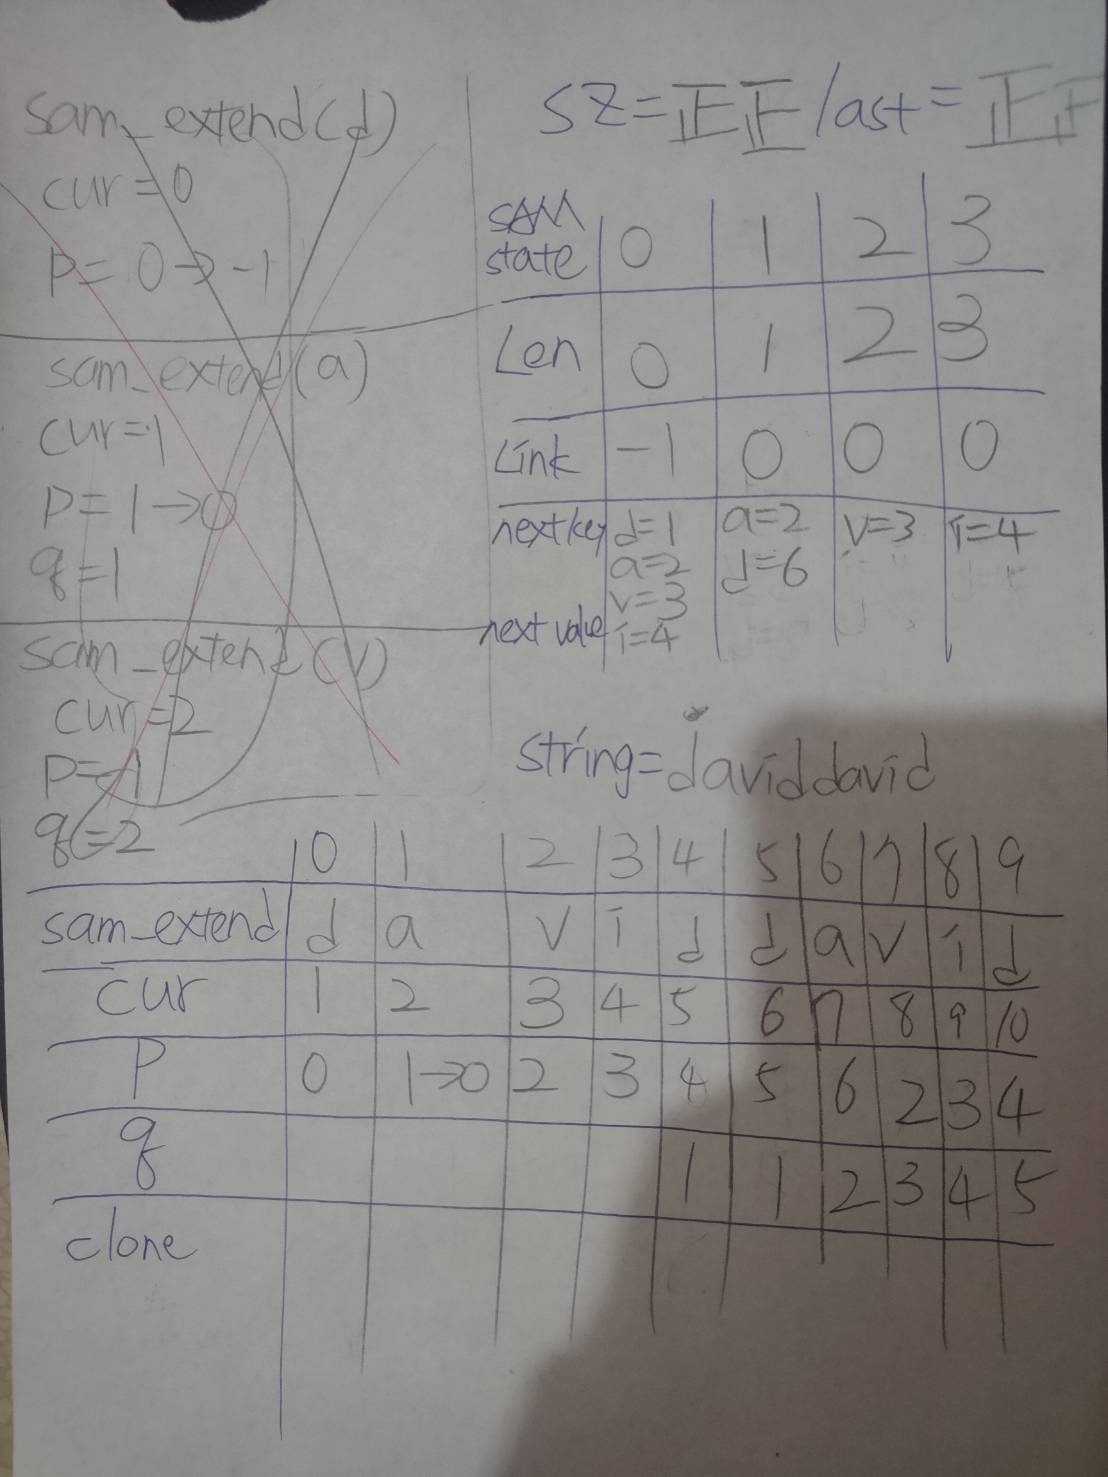 sam_extend(d)
cur=0
P=0→-1
sam_extend(a)
cur=1
P=1→0
q=1
sam_extend(v)
cur=2
P=-1
q=2
sz=正正 last=正正
SAM state 0 1 2 3
Len 0 1 2 3
Link -1 0 0 0
next key d=1 a=2 v=3 i=4
a=2 d=6
v=3
next value i=4
string=daviddavid
0 1 2 3 4 5 6 7 8 9
sam_extend d a v i d d a v i d
cur 1 2 3 4 5 6 7 8 9 10
P 0 1→0 2 3 4 5 6 2 3 4
q 1 1 2 3 4 5
clone